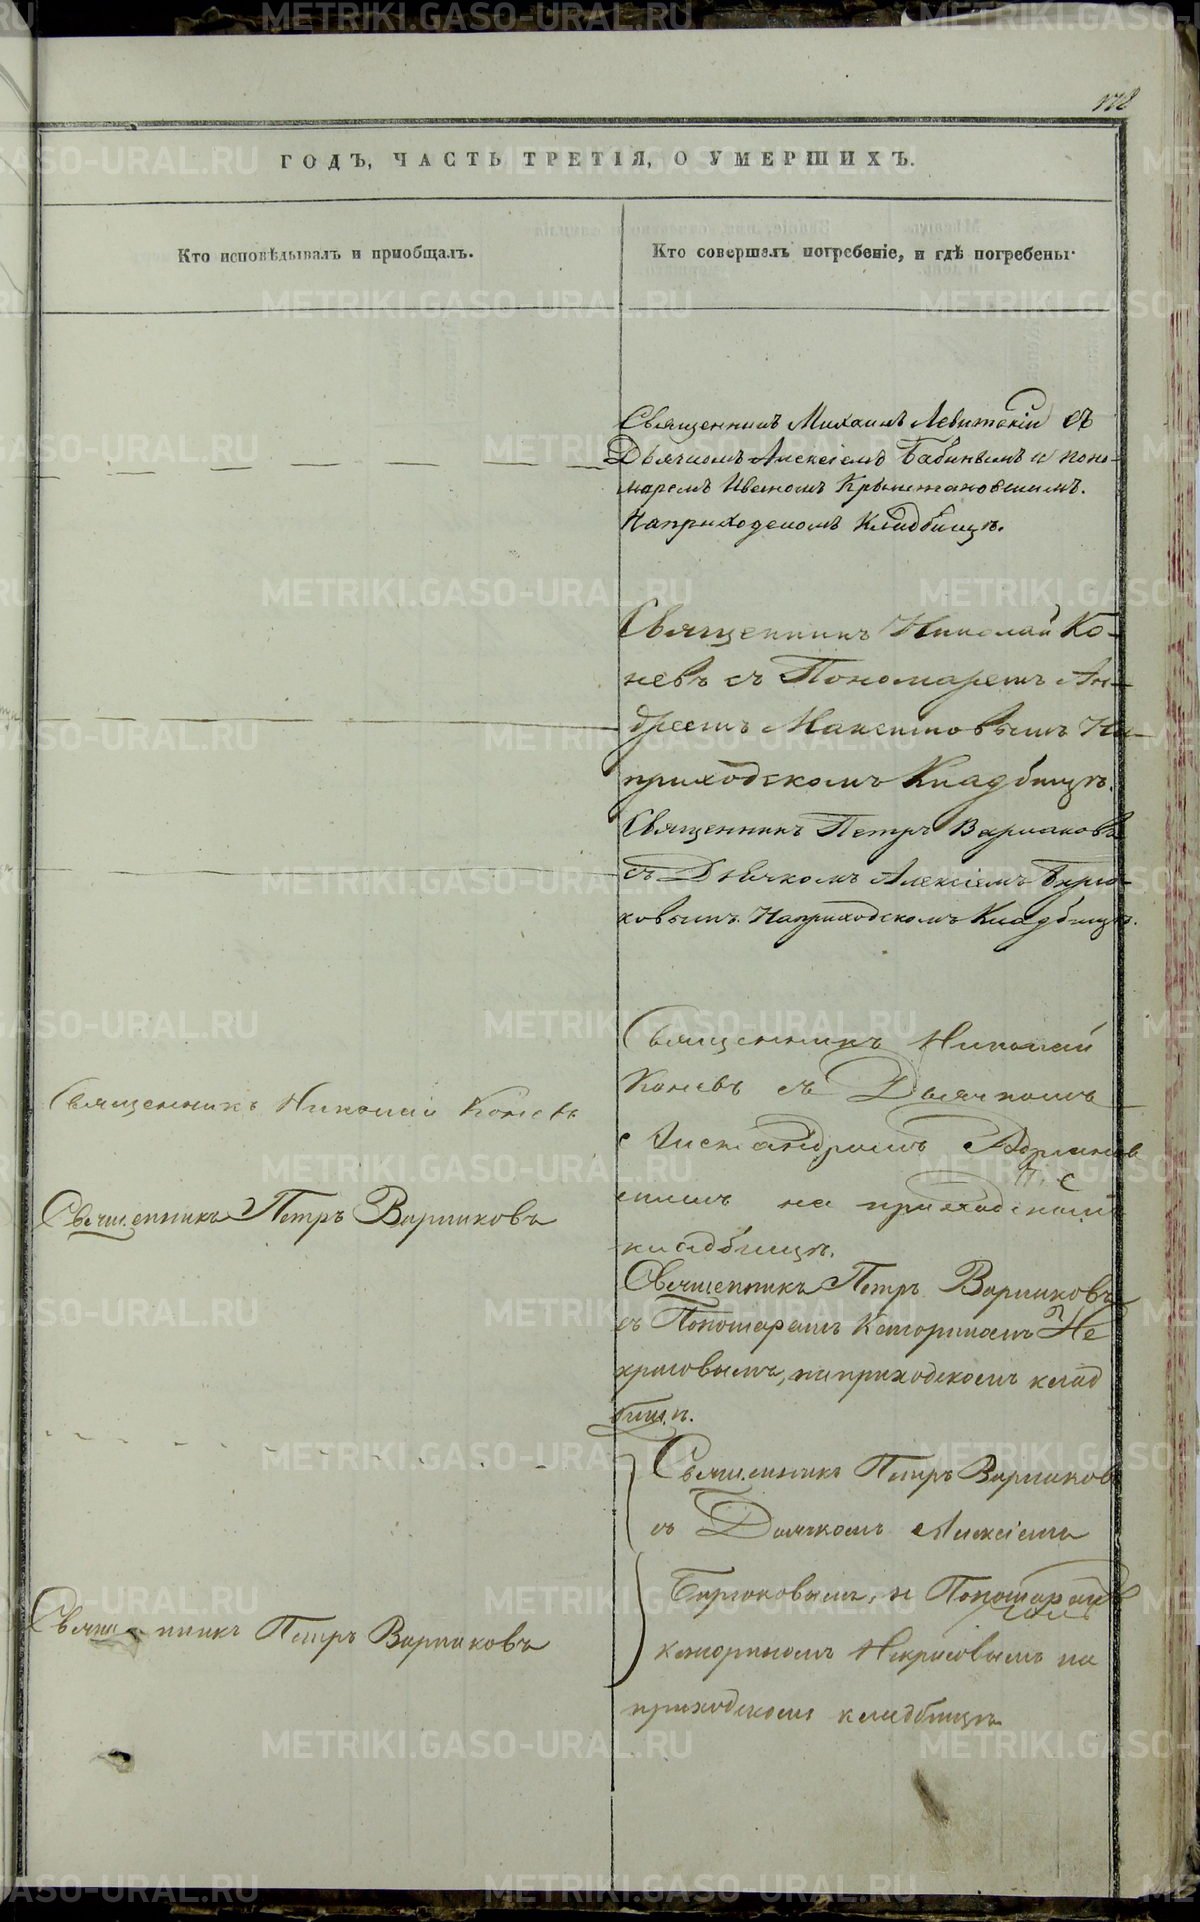 178
ГОДЪ, ЧАСТЬ ТРЕТІЯ, О УМЕРШИХЪ.
Кто исповѣдывалъ и пріобщалъ.
Кто совершалъ погребеніе, и гдѣ погребены.
Священникъ Михаилъ Левитскій съ
Дьячкомъ Алексіемъ Бабинымъ и поно-
маремъ Иваномъ Крыжановскимъ.
На приходскомъ Кладбищѣ.
Священникъ Николай Ко-
невъ съ Пономаремъ Ан-
дреемъ Максимовымъ На
приходскомъ Кладбищѣ.
Священникъ Петръ Варлаковъ
съ Дьячкомъ Алексіемъ Бирю-
ковымъ На приходскомъ Кладбищѣ.
Священникъ Николай Коневъ
Священникъ Николай
Коневъ съ Дьячкомъ
Александромъ
на приходскомъ
кладбищѣ.
Священникъ Петръ Варлаковъ
Священникъ Петръ Варлаковъ
съ Пономаремъ Не
красовымъ, на приходскомъ клад
бищѣ.
Священникъ Петръ Варлаковъ
съ Дьячкомъ Алексіемъ
Бирюковымъ, и Пономаремъ
Некрасовымъ на
приходскомъ кладбищѣ
Священникъ Петръ Варлаковъ
METRIKI.GASO-URAL.RU